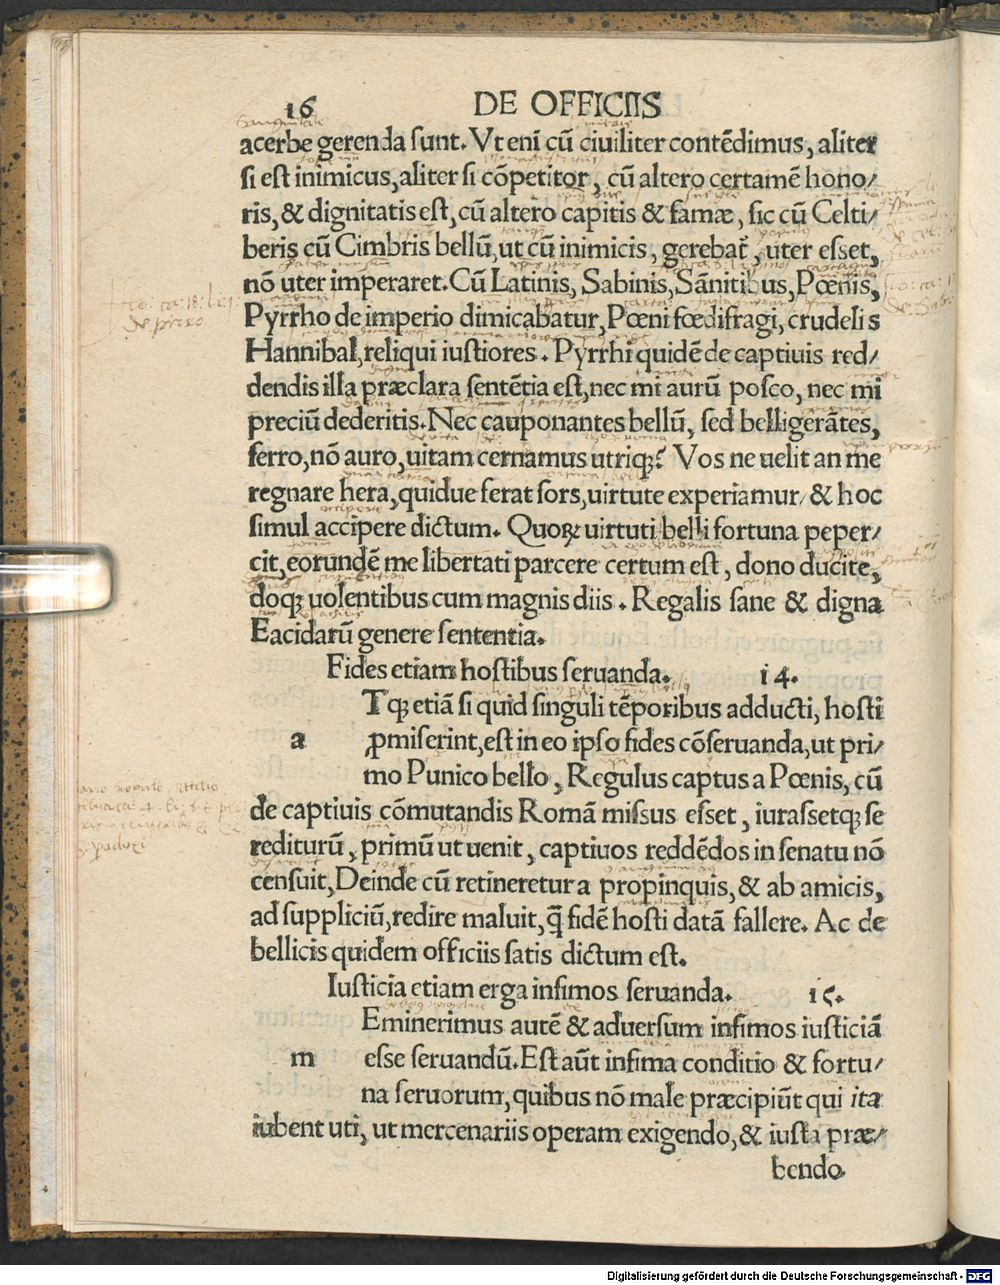 16 DE OFFICIIS
acerbe gerenda ſunt. Vt enī cū ciuiliter contēdimus, aliter
ſi eſt inimicus, aliter ſi cōpetitor, cū altero certamē hono/
ris, & dignitatis eſt, cū altero capitis & famæ, ſic cū Celti/
beris cū Cimbris bellū, ut cū inimicis, gerebat̃, uter eſſet,
nō uter imperaret. Cū Latinis, Sabinis, Sānitibus, Pœnis,
Pyrrho de imperio dimicabatur, Pœni fœdifragi, crudelis
Hannibal, reliqui iuſtiores. Pyrrhi quidē de captiuis red/
dendis illa præclara ſentētia eſt, nec mi aurū poſco, nec mi
preciū dederitis. Nec cauponantes bellū, ſed belligerātes,
ferro, nō auro, uitam cernamus utriqꝫ? Vos ne uelit an me
regnare hera, quidue ferat ſors, uirtute experiamur, & hoc
ſimul accipere dictum. Quorꝝ uirtuti belli fortuna peper/
cit, eorundē me libertati parcere certum eſt, dono ducite,
doqꝫ uolentibus cum magnis diis. Regalis ſane & digna
Eacidarū genere ſententia.
Fides etiam hoſtibus ſeruanda. 14.
Tqꝫ etiā ſi quid ſinguli tēporibus adducti, hoſti
a ꝓmiſerint, eſt in eo ipſo fides cōſeruanda, ut pri/
mo Punico bello, Regulus captus a Pœnis, cū
de captiuis cōmutandis Romā miſſus eſſet, iuraſſetqꝫ ſe
rediturū, primū ut uenit, captiuos reddēdos in ſenatu nō
cenſuit, Deinde cū retineretur a propinquis, & ab amicis,
ad ſuppliciū, redire maluit, q̄ fidē hoſti datā fallere. Ac de
bellicis quidem officiis ſatis dictum eſt.
Iuſticia etiam erga infimos ſeruanda. 15.
Eminerimus autē & aduerſum infimos iuſticiā
m eſſe ſeruandū. Eſt aūt infima conditio & fortu/
na ſeruorum, quibus nō male præcipiūt qui ita
iubent uti, ut mercenariis operam exigendo, & iuſta præ/
bendo
Digitalisierung gefördert durch die Deutsche Forschungsgemeinschaft - DFG